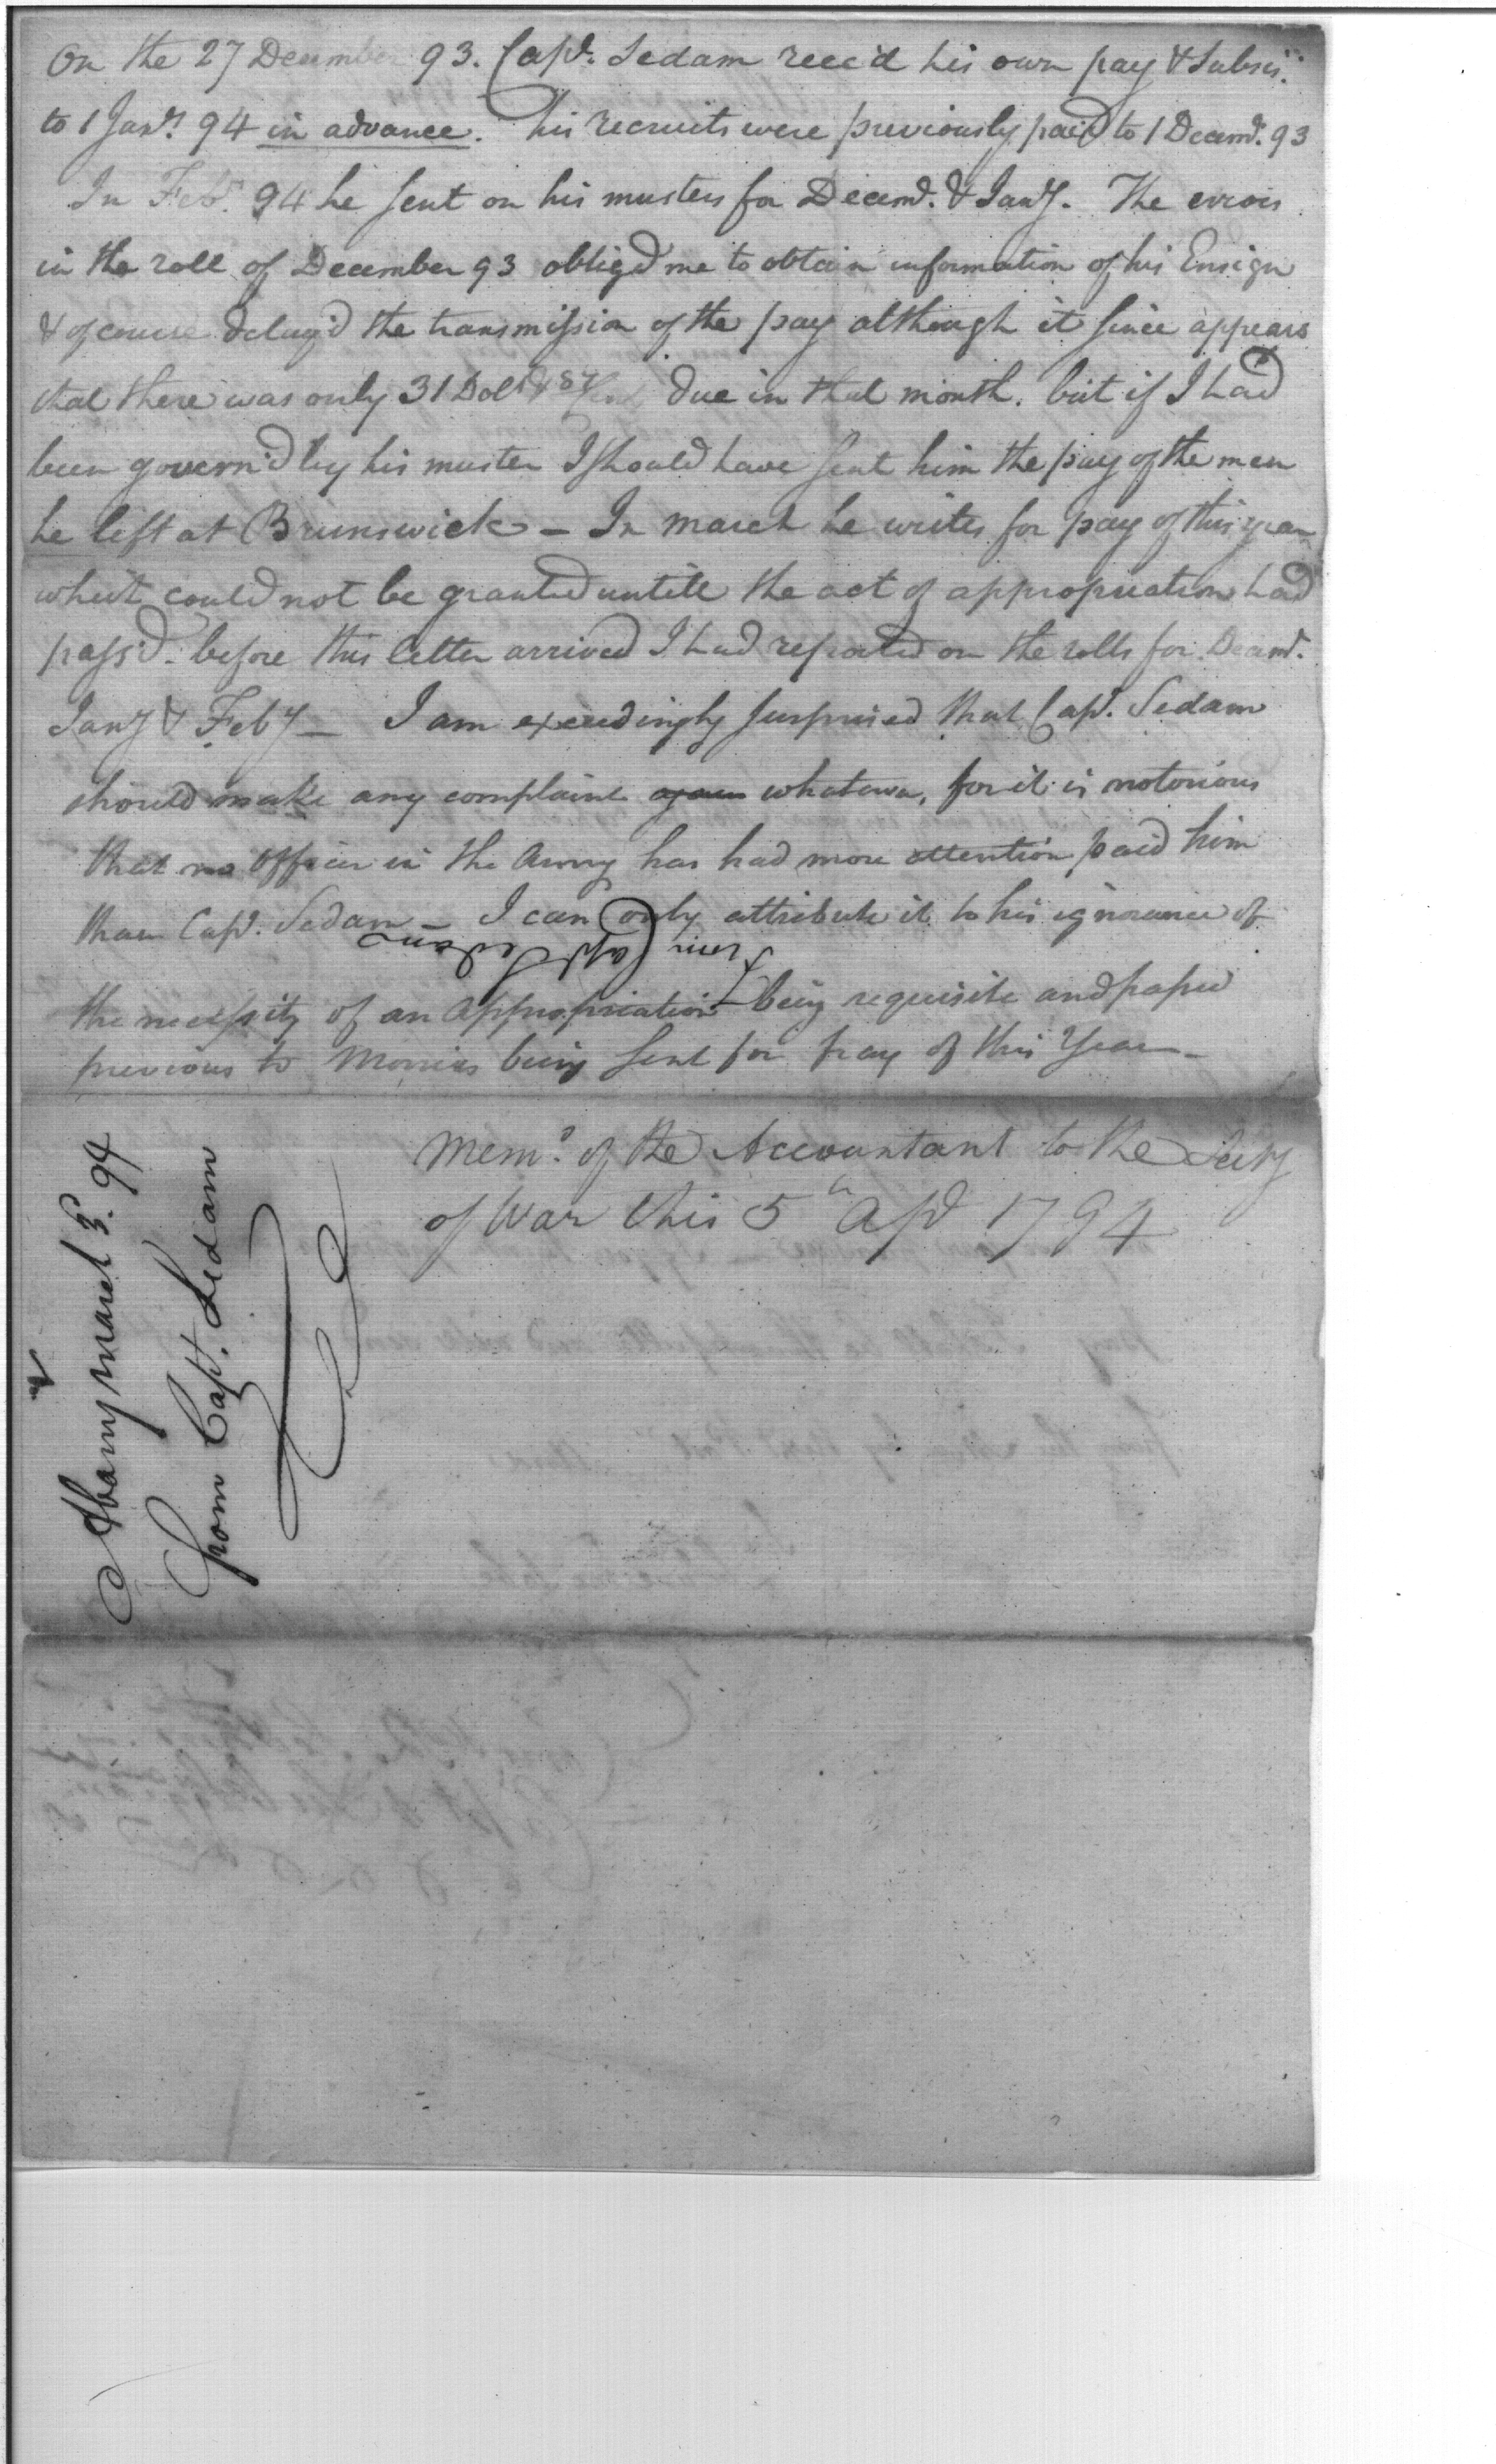 On the 27 December 93. Capt. Sedam rece'd his own pay & Subsis.
to 1 Jany. 94 in advance. his recruits were previously paid to 1 Decemr. 93
In Feby. 94 he sent on his musters for Decemr. & Jany. The errors
in the roll of December 93 oblig'd me to obtain information of his Ensign
& of course delay'd the transmission of the pay although it since appears
that there was only 31 Dolls & 87 due in that month. but if I had
been govern'd by his muster I should have sent him the pay of the men
he left at Brunswick - In march he writes for pay of this year
which could not be granted untill the act of appropriation had
pass'd. before this letter arrived I had reported on the rolls for Decemr.
Jany & Feby - I am exceedingly surprised that Capt. Sedam
should make any complaint again whatever, for it is notorious
that no Officer in the Army has had more attention paid him
than Capt. Sedam - I can only attribute it to his ignorance of
from Capt Sedam
the necessity of an Appropriation being requisite and passed
previous to Monies being sent for pay of this Year -
Memo. of the Accountant to the Secy
of War this 5th Apl 1794
Albany March 3. 94
from Capt. Sedam